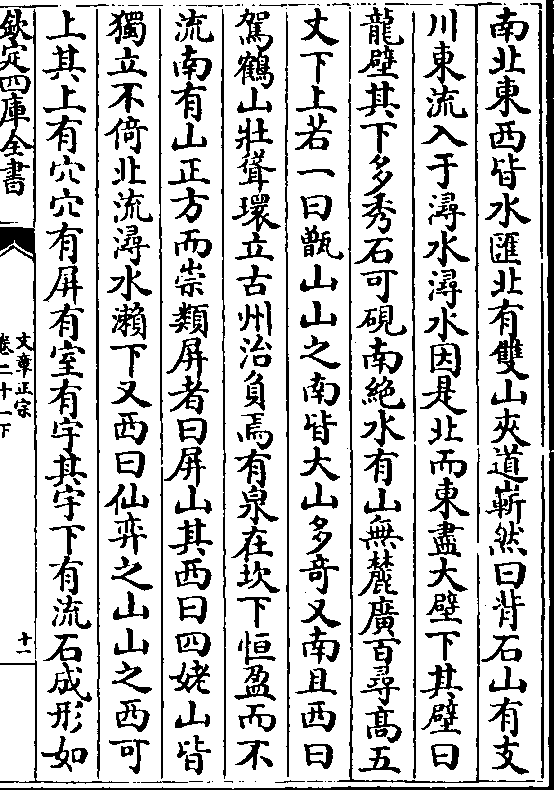 南北東西皆水匯北有雙山夾道嶄然曰背石山有支
川東流入于潯水潯水因是北而東盡大壁下其壁曰
龍壁其下多秀石可硯南絶水有山無麓廣百尋髙五
丈下上若一曰甑山山之南皆大山多竒又南且西曰
駕鶴山壯聳環立古州治負焉有泉在坎下恒盈而不
流南有山正方而崇類屏者曰屏山其西曰四姥山皆
獨立不倚北流潯水瀨下又西曰仙弈之山山之西可
上其上有穴穴有屏有室有宇其宇下有流石成形如
欽定四庫全書
文章正宗
卷二十一下
十一